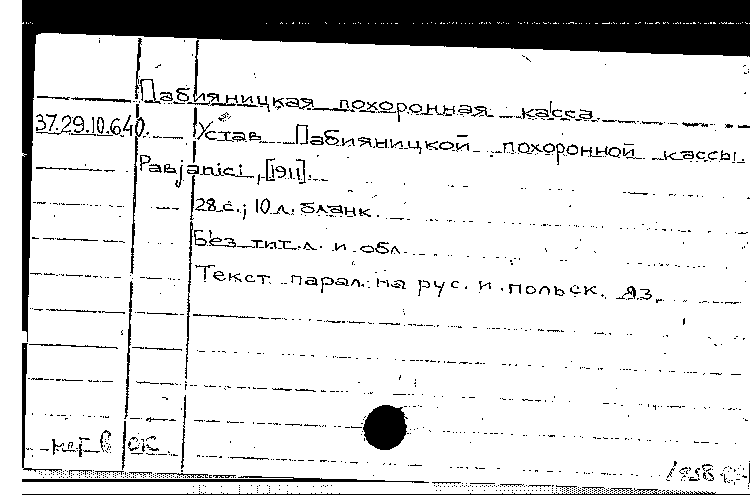 Пабияницкая похоронная касса.
37.29.10.640. Устав Пабияницкой похоронной кассы.
Pabjanici, [1911].
28 с.; 10 л. бланк.
Без тит. л. и обл.
Текст парал. на рус. и польск. яз.
нет в ОК